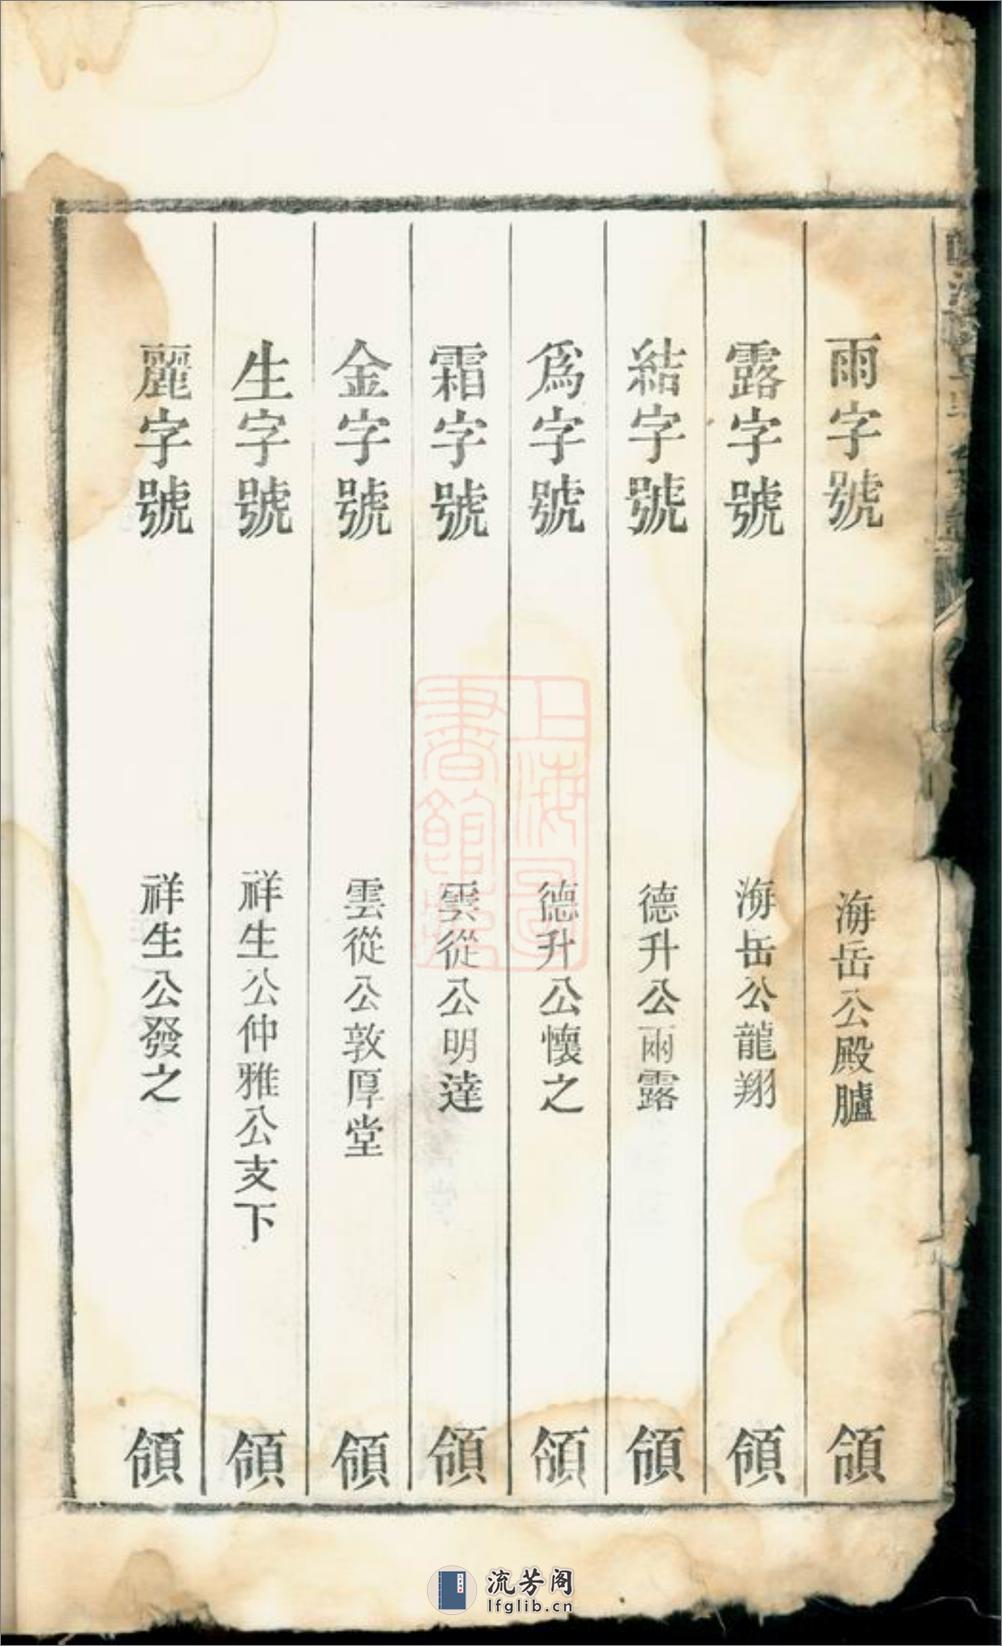 雨字號 海岳公殿臚 領
露字號 海岳公龍翔 領
結字號 德升公雨露 領
爲字號 德升公懷之 領
霜字號 雲從公明達 領
金字號 雲從公敦厚堂 領
生字號 祥生公仲雅公支下 領
麗字號 祥生公發之 領
上海圖
書館藏
流芳阁
lfglib.cn